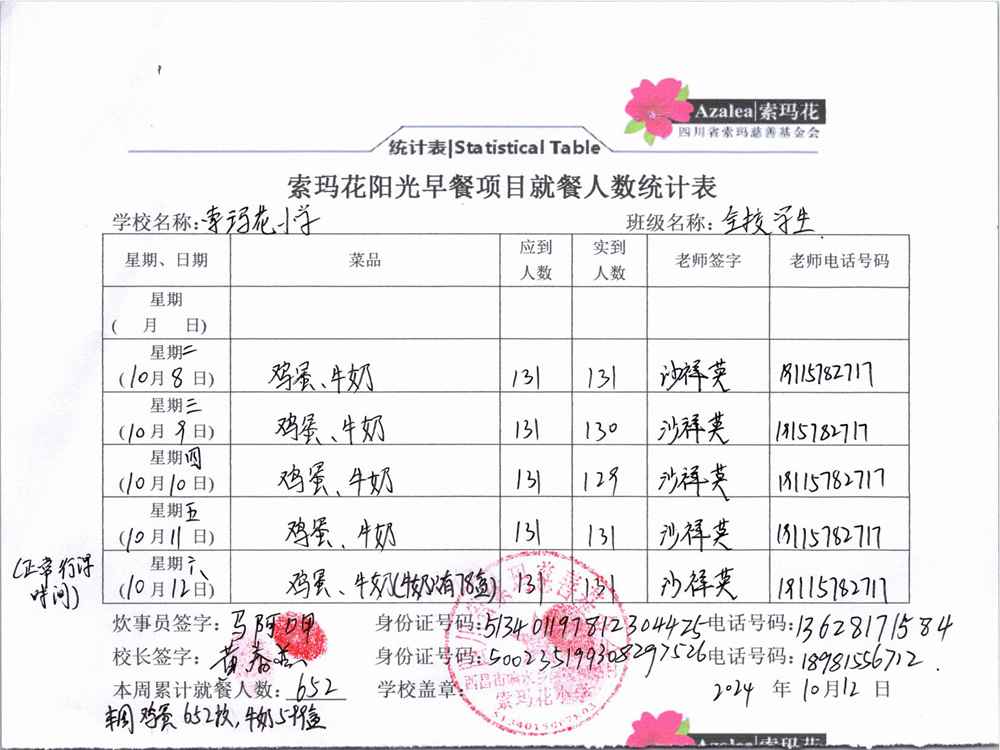 Azalea|索玛花
四川省索玛慈善基金会
统计表|Statistical Table
索玛花阳光早餐项目就餐人数统计表
学校名称:索玛花小学 班级名称:全校学生
星期、日期 菜品 应到人数 实到人数 老师签字 老师电话号码
星期
( 月 日)
星期二
(10月8日) 鸡蛋、牛奶 131 131 沙祥英 18115782717
星期三
(10月9日) 鸡蛋、牛奶 131 130 沙祥英 1815782717
星期四
(10月10日) 鸡蛋、牛奶 131 129 沙祥英 18115782717
星期五
(10月11日) 鸡蛋、牛奶 131 131 沙祥英 18115782717
(正常行课时间)
星期六
(10月12日) 鸡蛋、牛奶(牛奶只有78盒) 131 131 沙祥英 18115782717
炊事员签字:马阿 身份证号码:513401197812304425 电话号码:13628171584
校长签字:黄春 身份证号码:500235199308297526 电话号码:18981556712.
本周累计就餐人数:652 学校盖章: 2024 年 10月12 日
本周鸡蛋652枚,牛奶599盒
索玛花小学
Azalea|索玛花